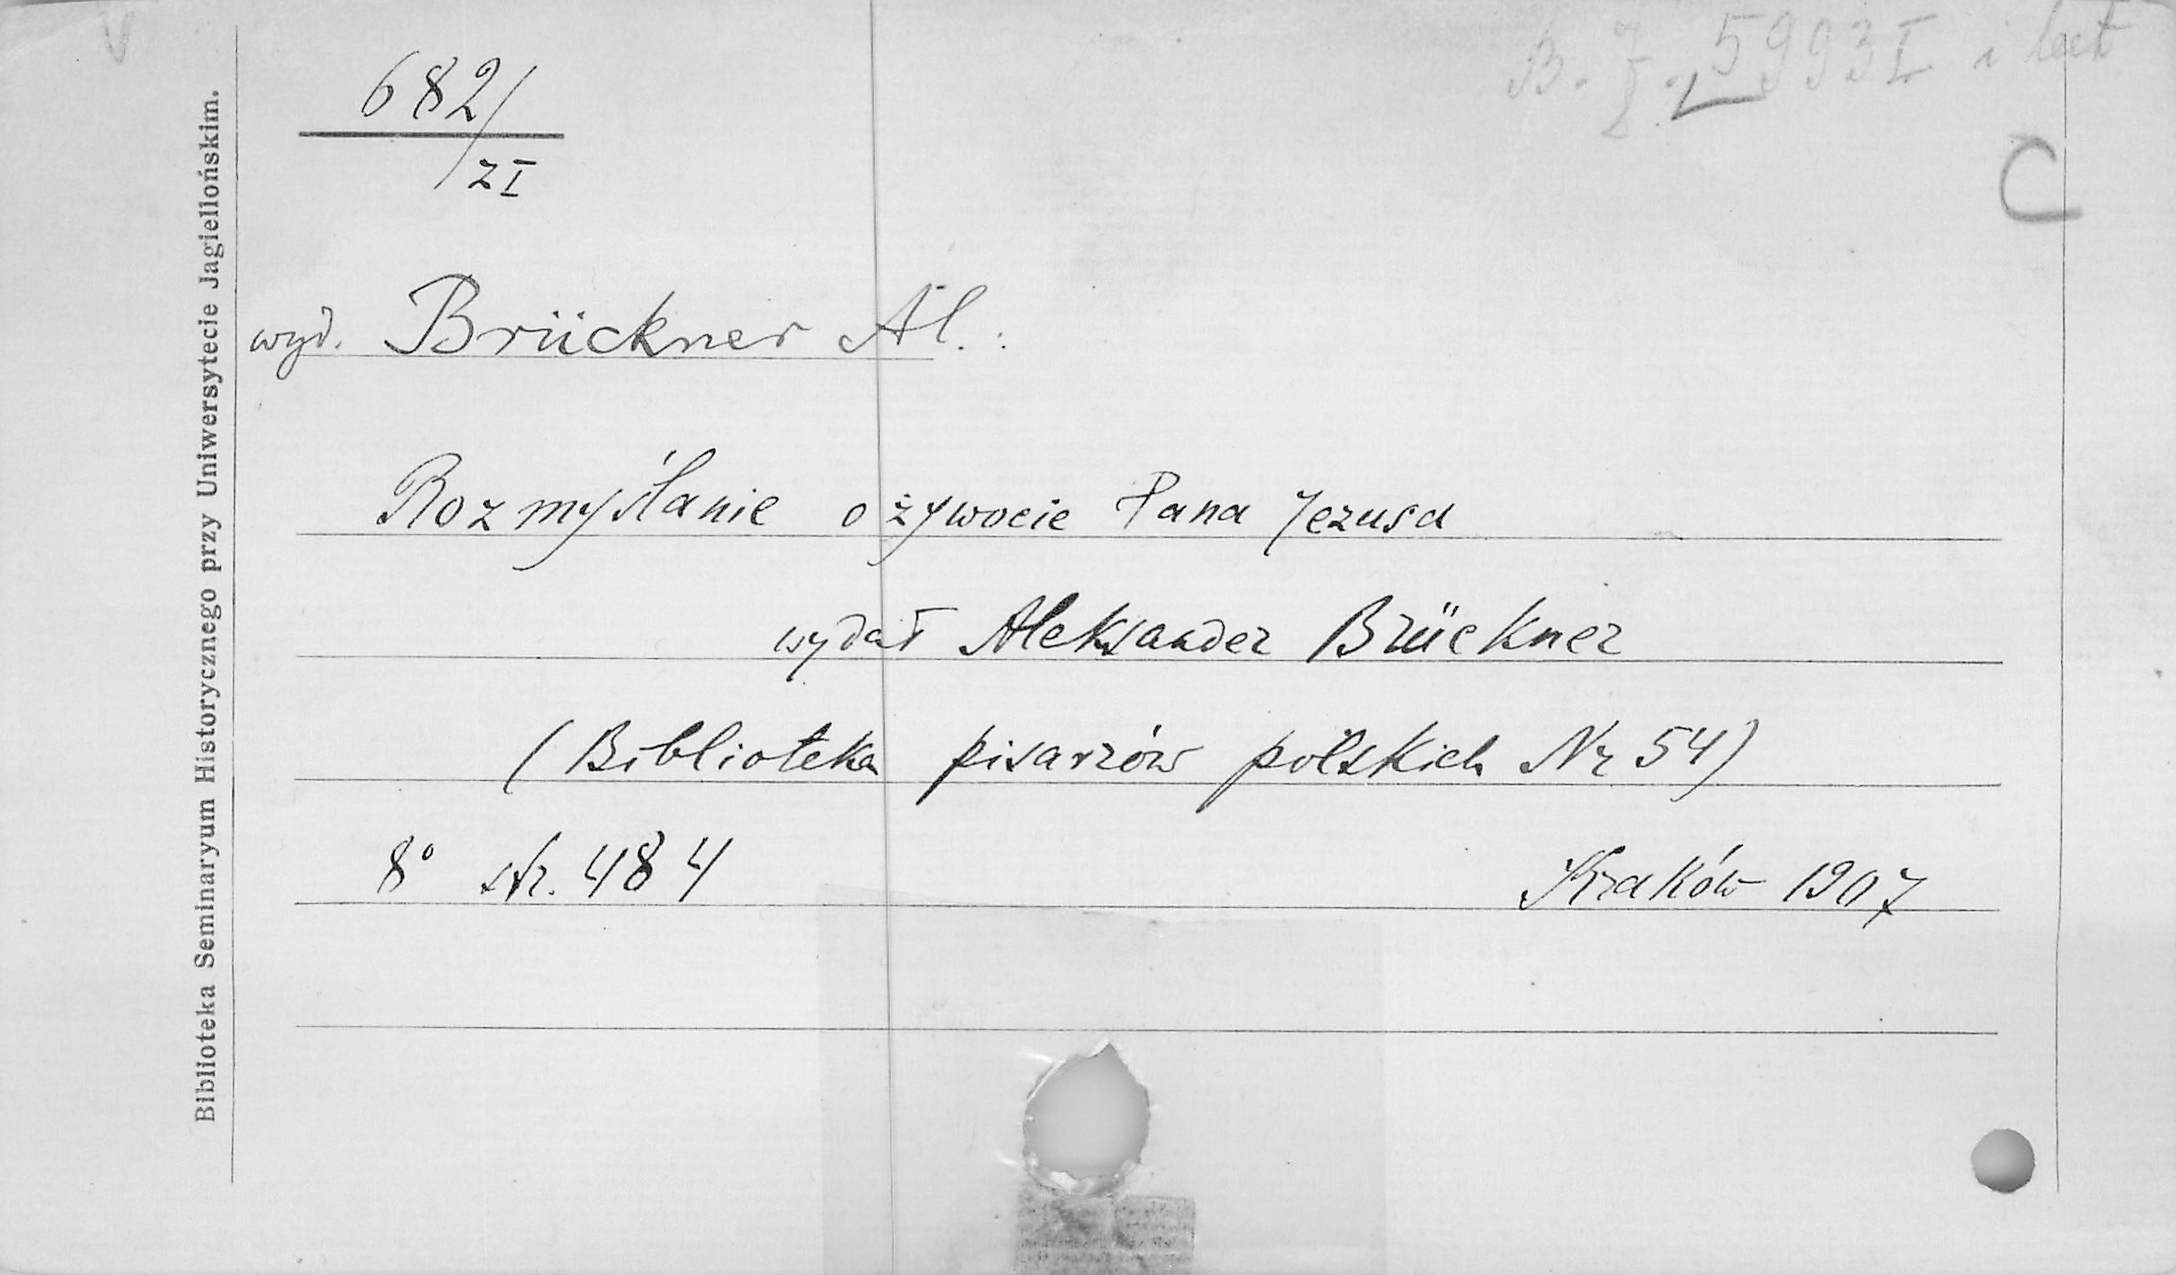 B. J. 5993 I i
682/
z I
C
wyd. Brückner Al.:
Rozmyślanie o żywocie Pana Jezusa
wydał Aleksander Brückner
(Biblioteka pisarzów polskich Nr 54)
8° str. 484 Kraków 1907
Biblioteka Seminaryum Historycznego przy Uniwersytecie Jagiellońskim.